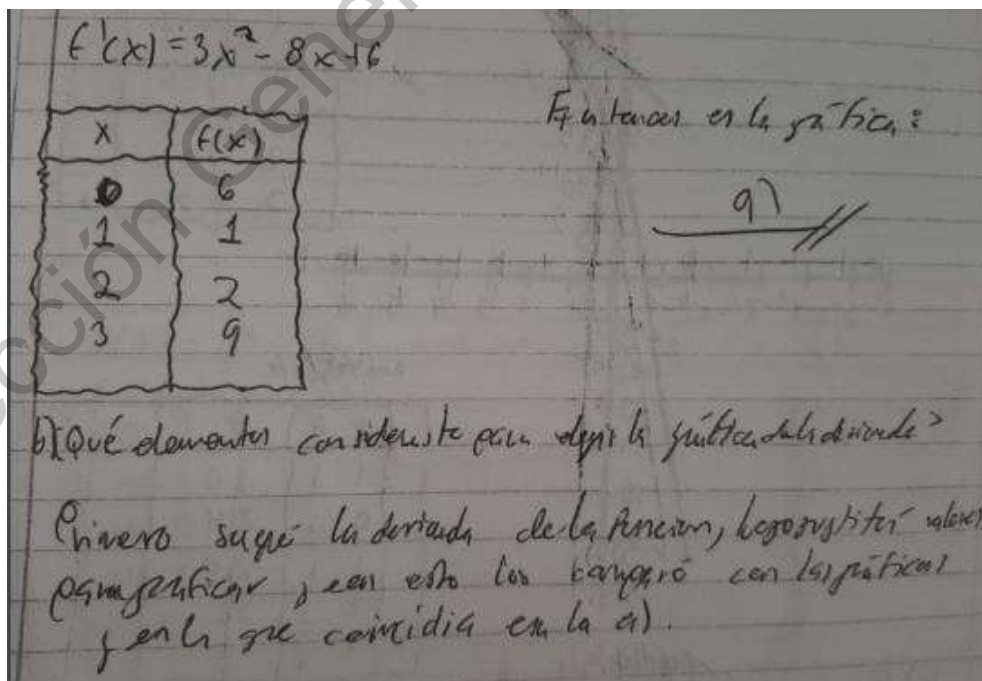 f'(x) = 3x² - 8x + 6
Entonces es la gráfica:
x f(x)
0 6
1 1
2 2
3 9
a)
b) ¿Qué elementos consideraste para elegir la gráfica de la derivada?
Primero saqué la derivada de la función, luego sustituí valores
para graficar y con esto los comparó con las gráficas
y en la que coincidía en la a).
cción Gene